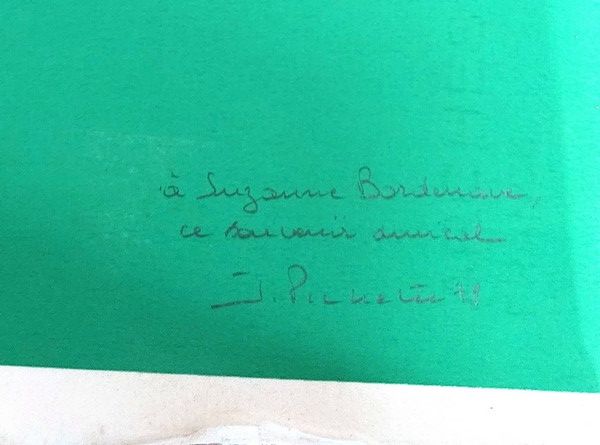 à Suzanne Bordenave,
ce souvenir amical
J. Pichette 79